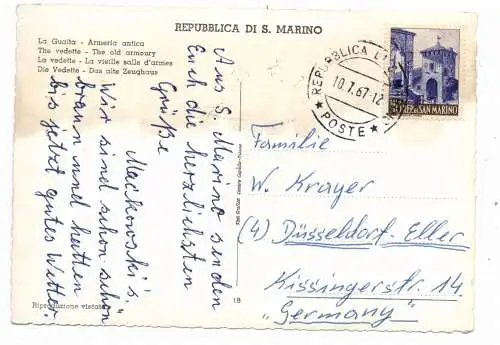 REPUBBLICA DI S. MARINO
La Guaita - Armeria antica
The vedette - The old armoury
La vedette - La vieille salle d'armes
Die Vedette - Das alte Zeughaus
Aus S. Marino senden
Euch die herzlichsten
Grüße
Mackowski's.
Wir sind schon "schön"
braun und hatten
bis jetzt gutes Wetter.
Riproduzione vietata
1B
REPUBBLICA
10.7.67-12
POSTE
SAN MARINO
Familie
W. Krayer
(4) Düsseldorf-Eller
Kissingerstr. 14
"Germany"